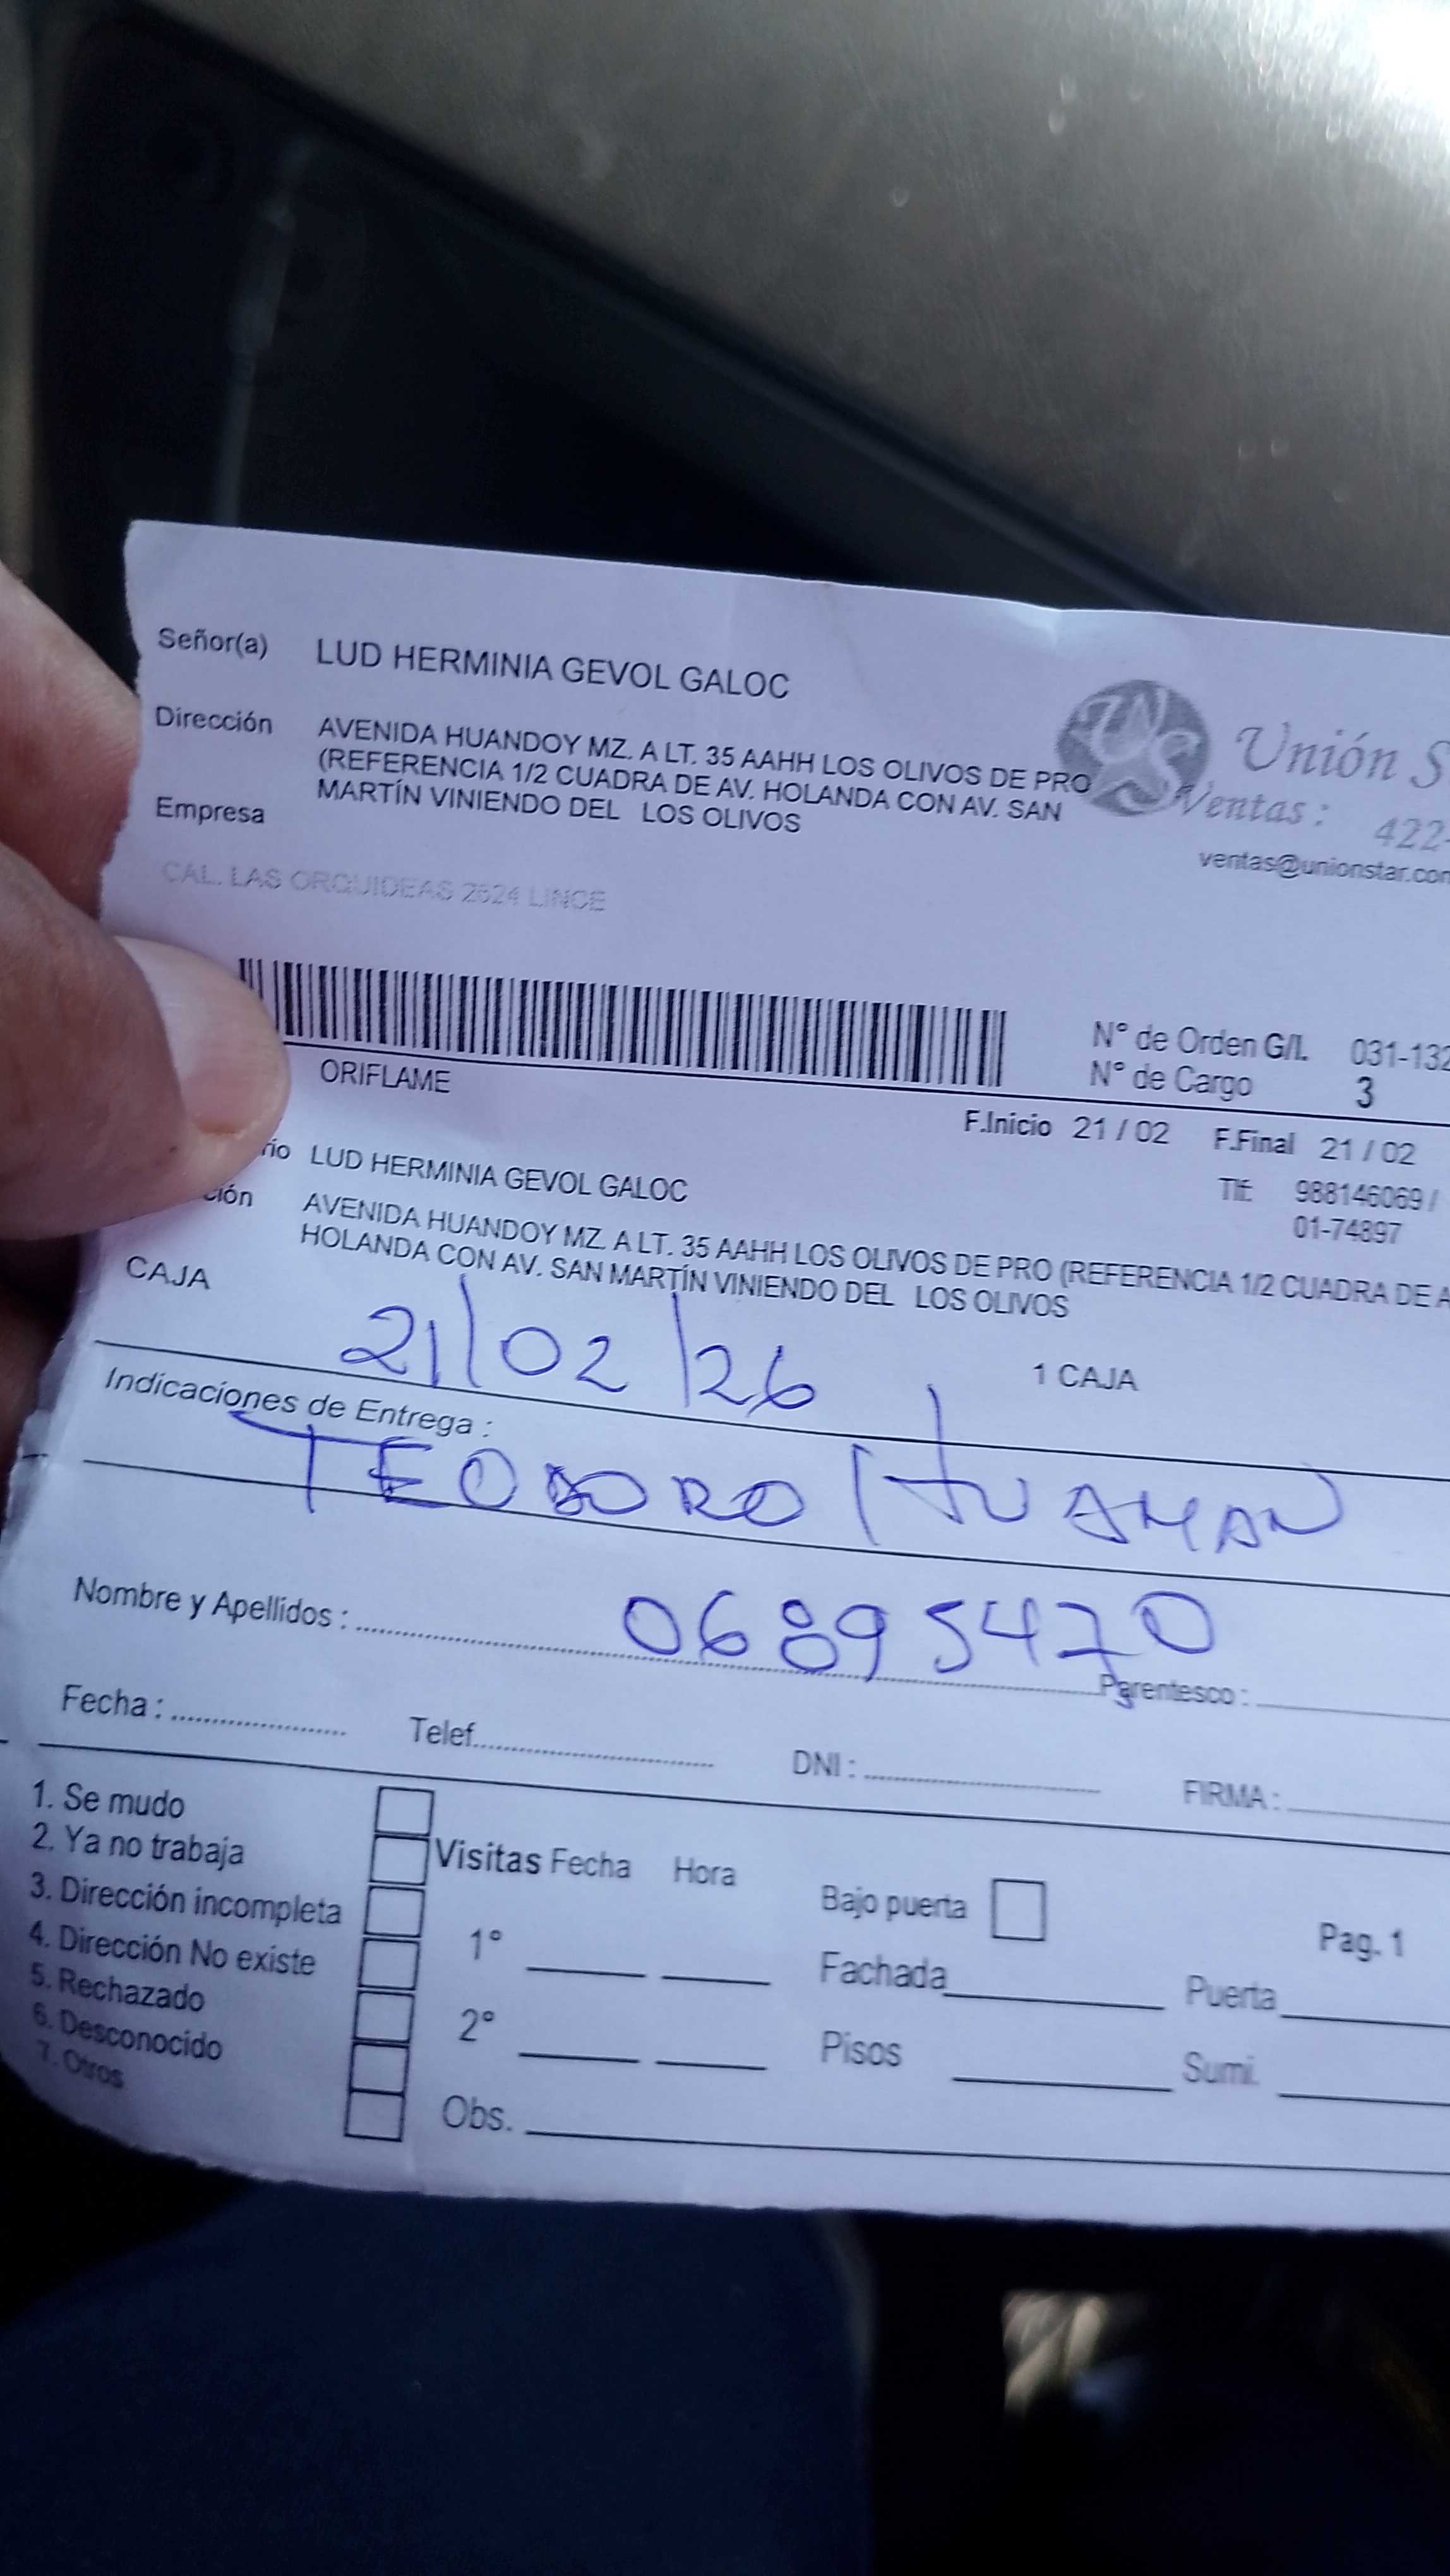 Señor(a) LUD HERMINIA GEVOL GALOC
Dirección AVENIDA HUANDOY MZ. A LT. 35 AAHH LOS OLIVOS DE PRO
(REFERENCIA 1/2 CUADRA DE AV. HOLANDA CON AV. SAN
MARTÍN VINIENDO DEL LOS OLIVOS
Empresa
Unión S
Ventas : 422-
ventas@unionstar.con
CAL. LAS ORQUIDEAS 2624 LINCE
N° de Orden G/L 031-132
N° de Cargo 3
ORIFLAME
F.Inicio 21 / 02 F.Final 21 / 02
rio LUD HERMINIA GEVOL GALOC
Tlf: 988146069 /
01-74897
ción AVENIDA HUANDOY MZ. A LT. 35 AAHH LOS OLIVOS DE PRO (REFERENCIA 1/2 CUADRA DE A
HOLANDA CON AV. SAN MARTÍN VINIENDO DEL LOS OLIVOS
CAJA
21/02/26
1 CAJA
Indicaciones de Entrega :
TEODORO HUAMAN
06895470
Nombre y Apellidos :
Parentesco :
Fecha : Telef. DNI : FIRMA :
1. Se mudo
2. Ya no trabaja
3. Dirección incompleta
4. Dirección No existe
5. Rechazado
6. Desconocido
7. Otros
Visitas Fecha Hora
1°
2°
Obs.
Bajo puerta
Pag. 1
Fachada Puerta
Pisos Sumi.